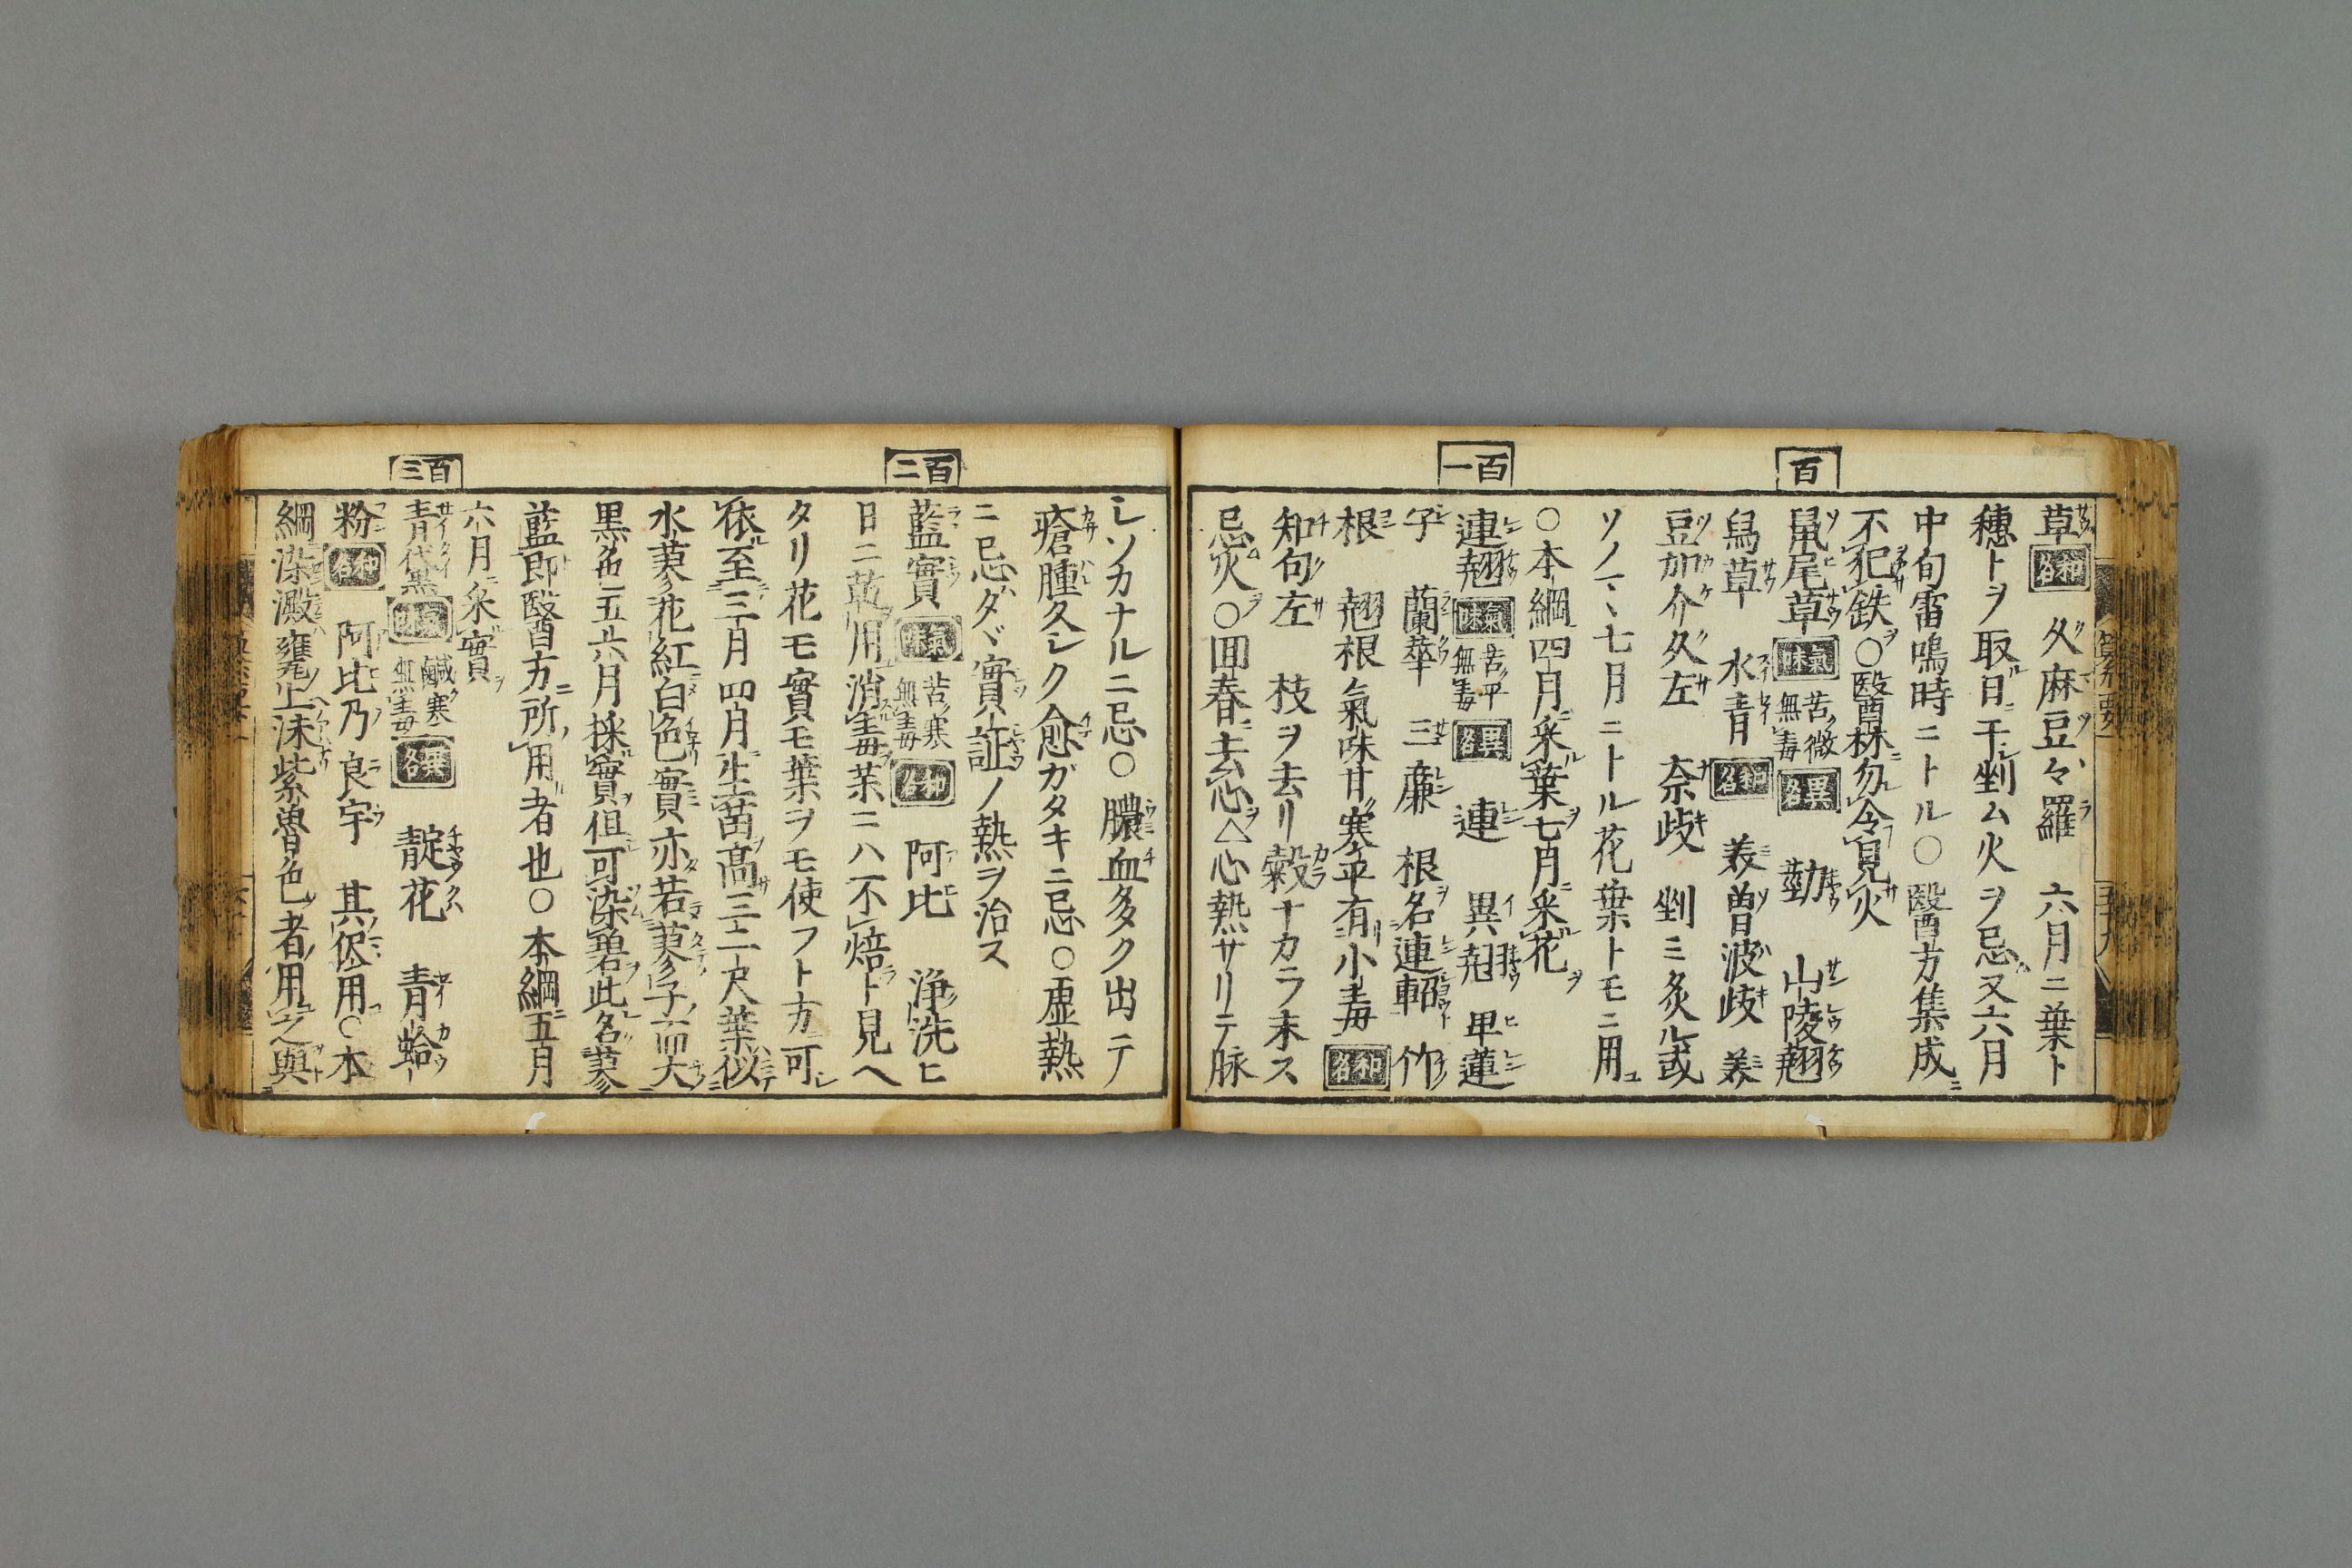 百
百一
草 和名 久麻豆々羅 六月ニ葉ト
穂トヲ取日ニ干剉ム火ヲ忌又六月
中旬雷鳴時ニトル○醫方集成ニ
不犯鉄○醫林勿令見火
鼠尾草 氣味 苦微無毒 異名 葝 山陵翹
烏草 水青 和名 美曽波歧 美
豆加介久左 奈歧 剉ミ炙ル或
ソノマヽ七月ニトル花葉トモニ用ユ
○本綱四月采葉七月采花
連翹 氣味 苦平無毒 異名 連 異翹 旱蓮
子 蘭華 三廉 根名連軺 竹
根 翹根氣味甘寒平有小毒 和名
知句左 枝ヲ去リ穀ナカラ末ス
忌火○回春去心△心熱サリテ脉
百二
百三
シソカナルニ忌○膿血多ク出テ
瘡腫久シク愈ガタキニ忌○虚熱
ニ忌ダヾ實証ノ熱ヲ治ス
藍實 氣味 苦寒無毒 和名 阿比 浄洗ヒ
日ニ乾用消毒茱ニハ不焙ト見ヘ
タリ花モ實モ葉ヲモ使フト方可
依至三月四月生苗高三二尺葉似
水蓼花紅白色實亦若蓼子而大
黒色五六月採實但可染碧此名蓼
藍即醫方所用者也○本綱五月
六月采實
青代黒 氣味 鹹寒無毒 異名 靛花 青蛤
粉 和名 阿比乃良宇 其侭用○本
綱染澱甕上沫紫曽色者用之與